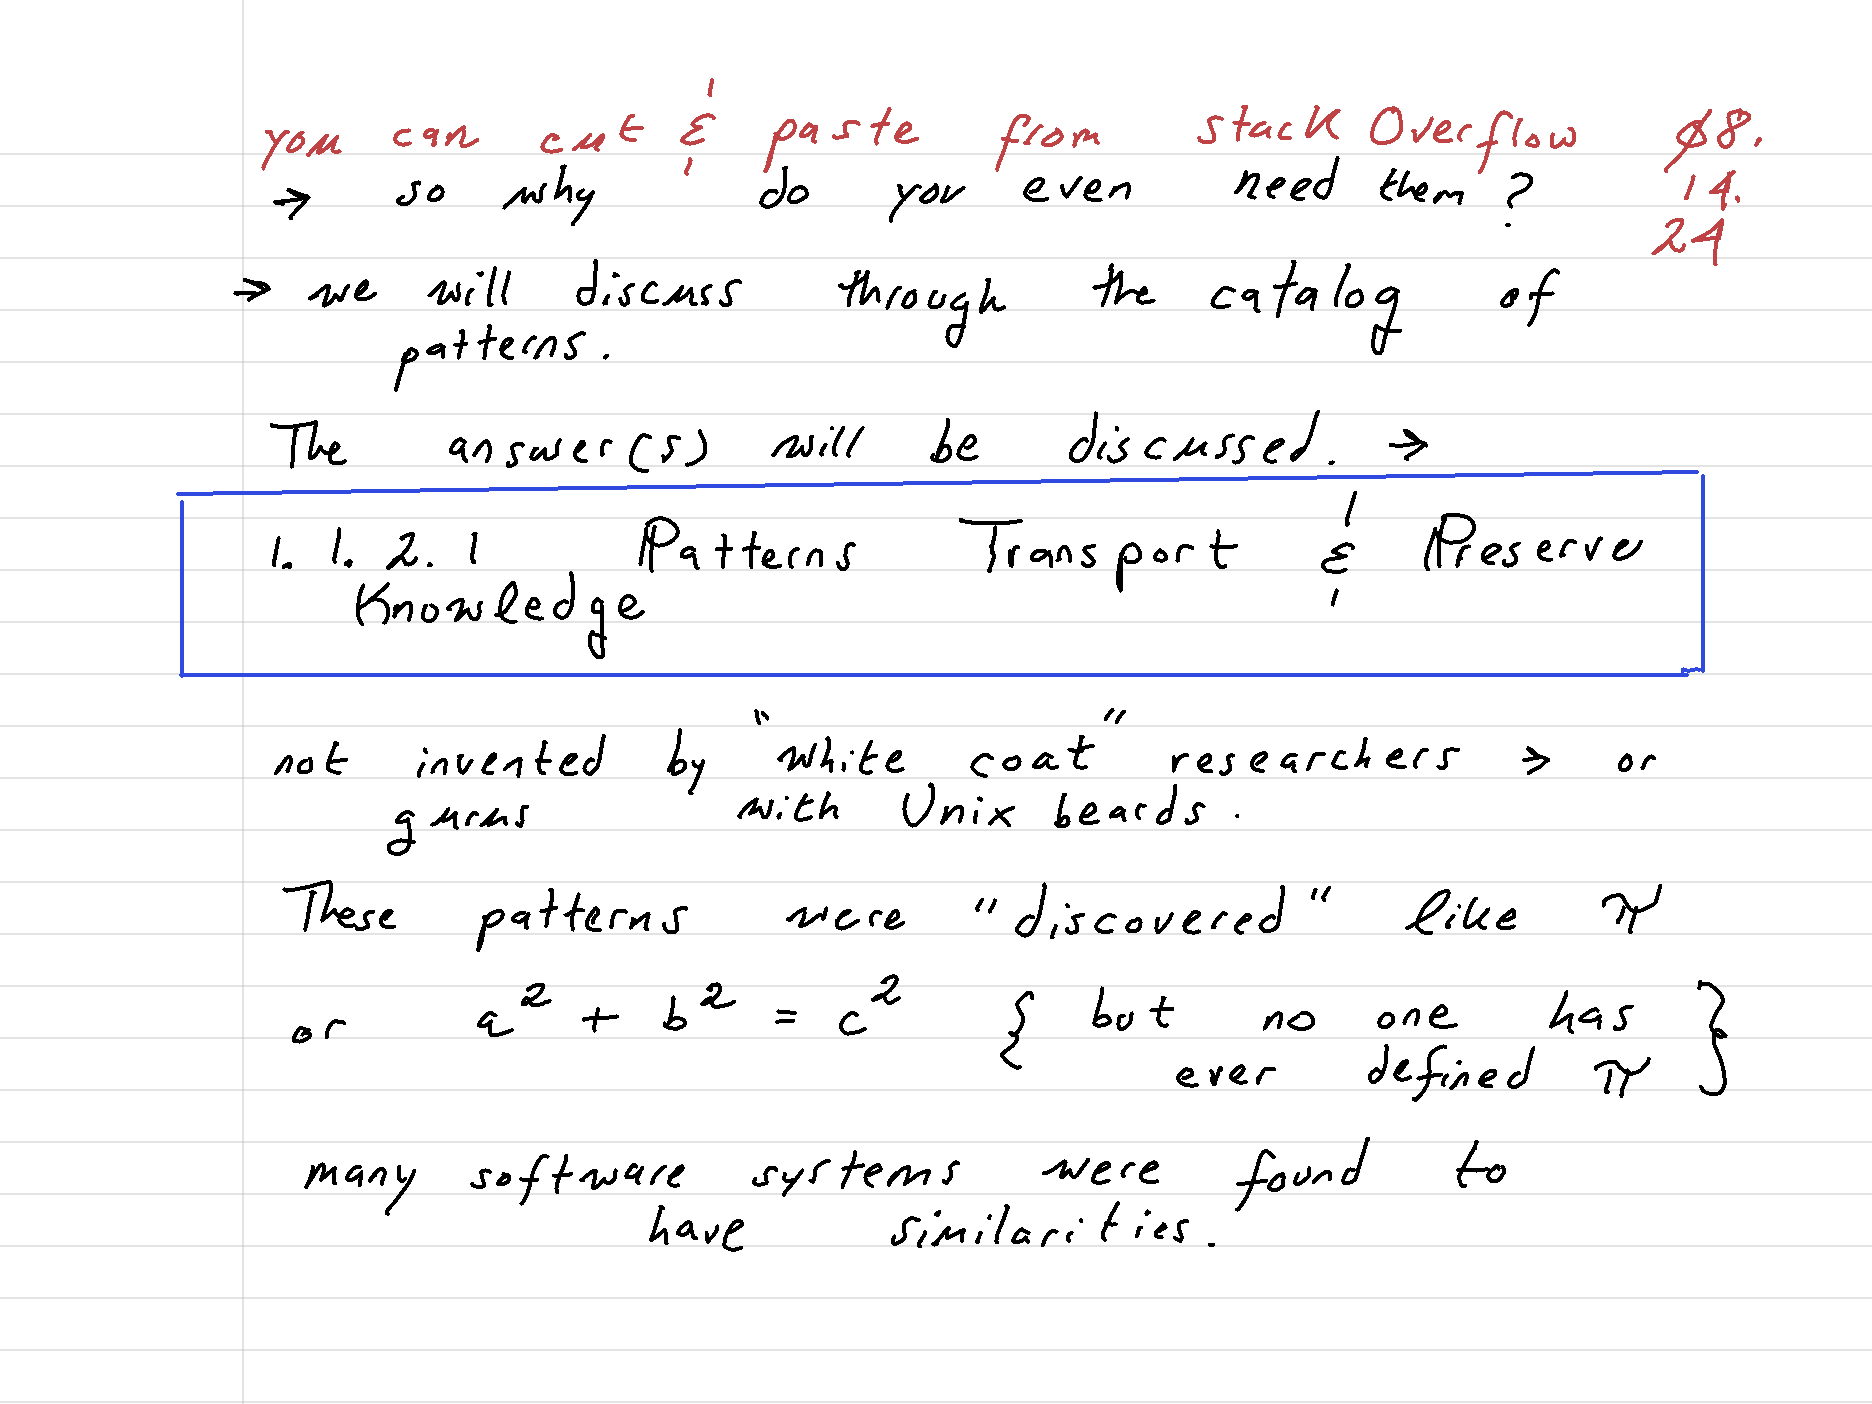 you can cut & paste from stack Overflow Ø8.
→ so why do you even need them? 14.
24
→ we will discuss through the catalog of
patterns.
The answer(s) will be discussed. →
1. 1. 2. 1 Patterns Transport & Preserve
Knowledge
not invented by "white coat" researchers → or
gurus with Unix beards.
These patterns were "discovered" like π
or a² + b² = c² { but no one has
ever defined π }
many software systems were found to
have similarities.